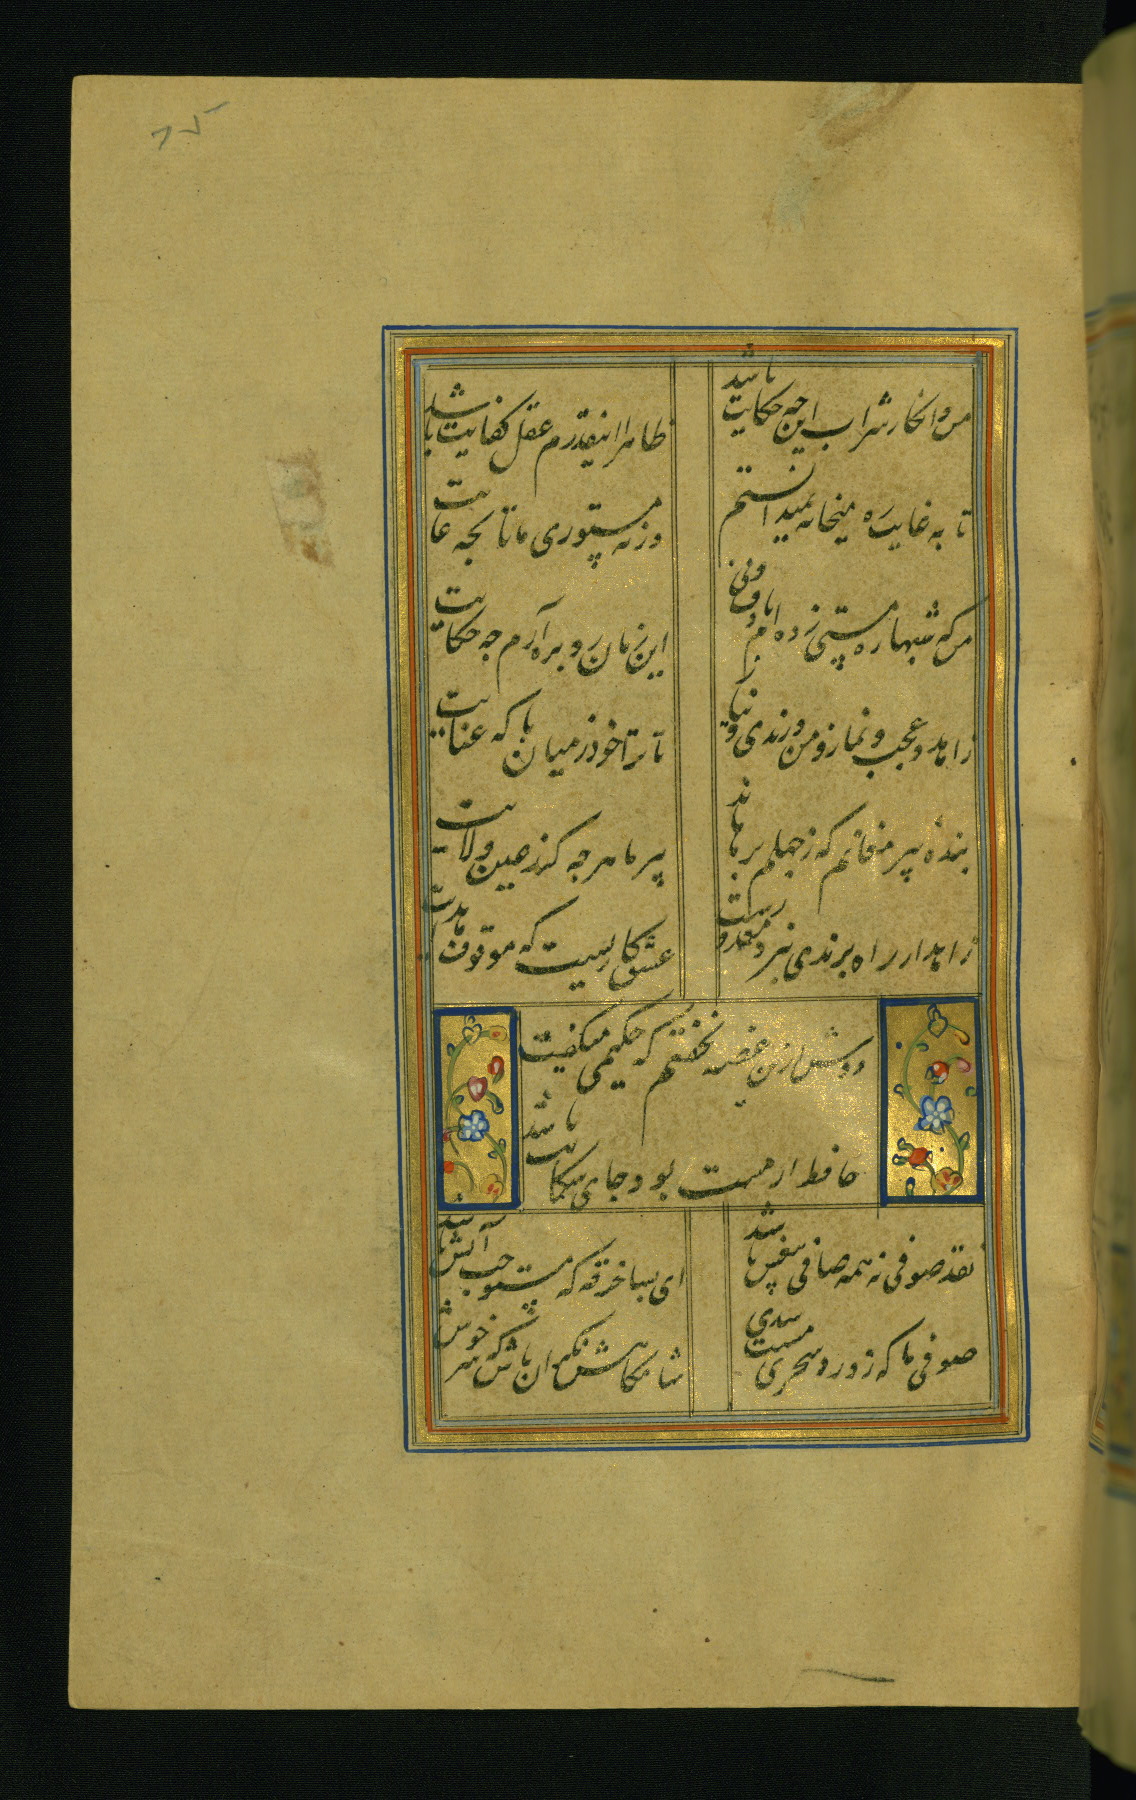 ۷۵
من و انکار شراب این چه حکایت باشد
ظاهرا اینقدرم عقل کفایت باشد
تا به غایت ره میخانه نمیدانستم
ورنه مستوری ما تا بچه غایت
من که شبها ره مستی زده ام با دف و نی
این زمان رو بره آرم چه حکایت
زاهد و عجب و نماز و من و رندی و نیاز
تا ترا خود ز میان با که عنایت
بندهٔ پیر مغانم که ز جهلم برهاند
پیر ما هر چه کند عین ولایت
زاهد ار راه برندی نبرد معذورست
عشق کاریست که موقوف هدایت
دوش ازین غصه نخفتم که حکیمی میگفت
حافظ ار مست بود جای شکایت باشد
نقد صوفی نه همه صافی بیغش باشد
ای بسا خرقه که مستوجب آتش باشد
صوفی ما که ز ورد سحری مست شدی
شامگاهش نگران باش که سر خوش